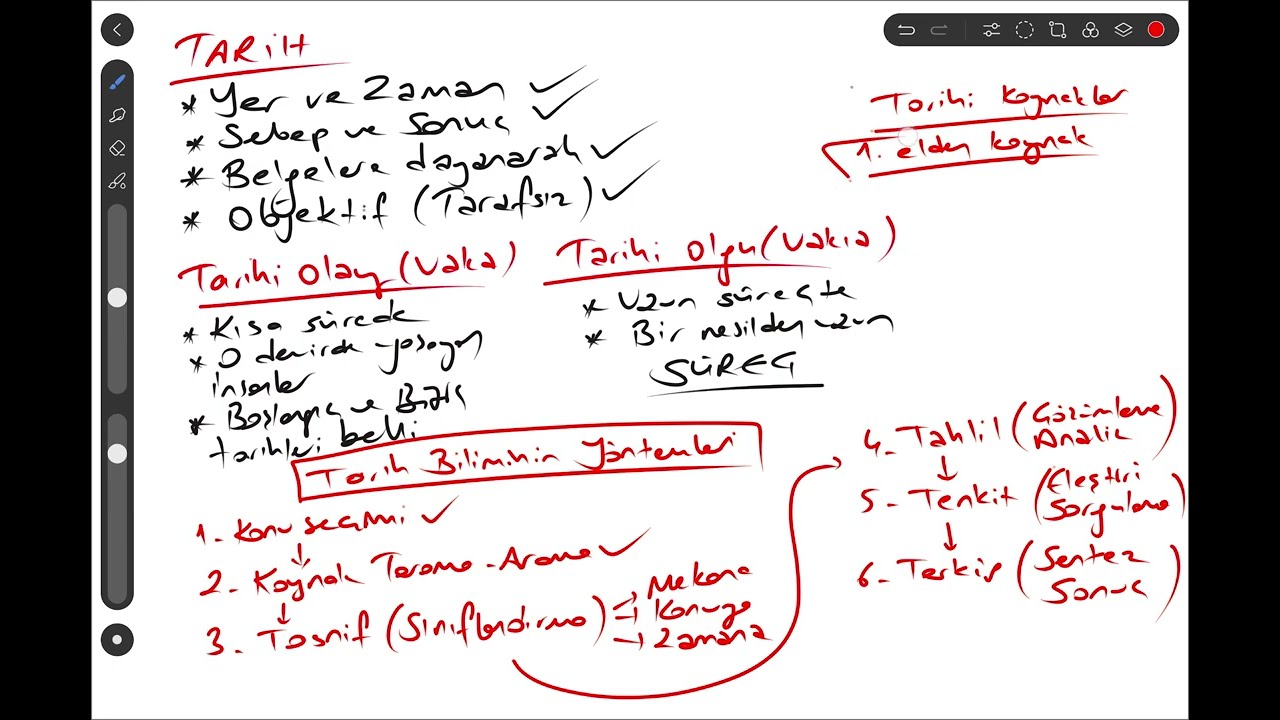 TARİH
* Yer ve Zaman ✓
* Sebep ve Sonuç ✓
* Belgelere dayanarak ✓
* Objektif (Tarafsız) ✓
Tarihi Olay (Vaka)
* Kısa sürede
* O devirde yaşayan
insanlar
* Başlangıç ve Bitiş
tarihleri belli
Tarihi Olgu (Vakıa)
* Uzun süreçte
* Bir nesilden uzun
SÜREÇ
Tarihi Kaynaklar
1. elden kaynak
Tarih Biliminin Yöntemleri
1- Konu seçimi ✓
↓
2- Kaynak Tarama - Arama ✓
↓
3. Tasnif (Sınıflandırma) → Mekana
→ Konuya
→ Zamana
4- Tahlil (Çözümleme
Analiz)
↓
5- Tenkit (Eleştiri
Sorgulama)
↓
6- Terkip (Sentez
Sonuç)